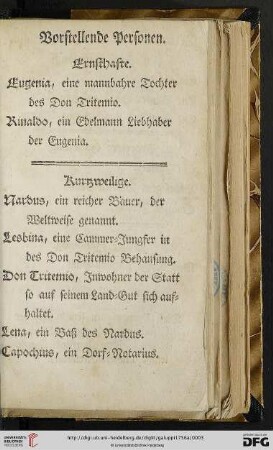 Vorstellende Personen.
Ernsthafte.
Eugenia, eine mannbahre Tochter
des Don Tritemio.
Rinaldo, ein Edelmann Liebhaber
der Eugenia.
Kurtzweilige.
Nardus, ein reicher Bauer, der
Weltweise genannt.
Lesbina, eine Cammer-Jungfer in
des Don Tritemio Behausung.
Don Tritemio, Inwohner der Statt
so auf seinem Land-Gut sich auf-
haltet.
Lena, ein Baß des Nardus.
Capochius, ein Dorf-Notarius.
UNIVERSITÄTS-
BIBLIOTHEK
HEIDELBERG
Gefördert durch die
DFG